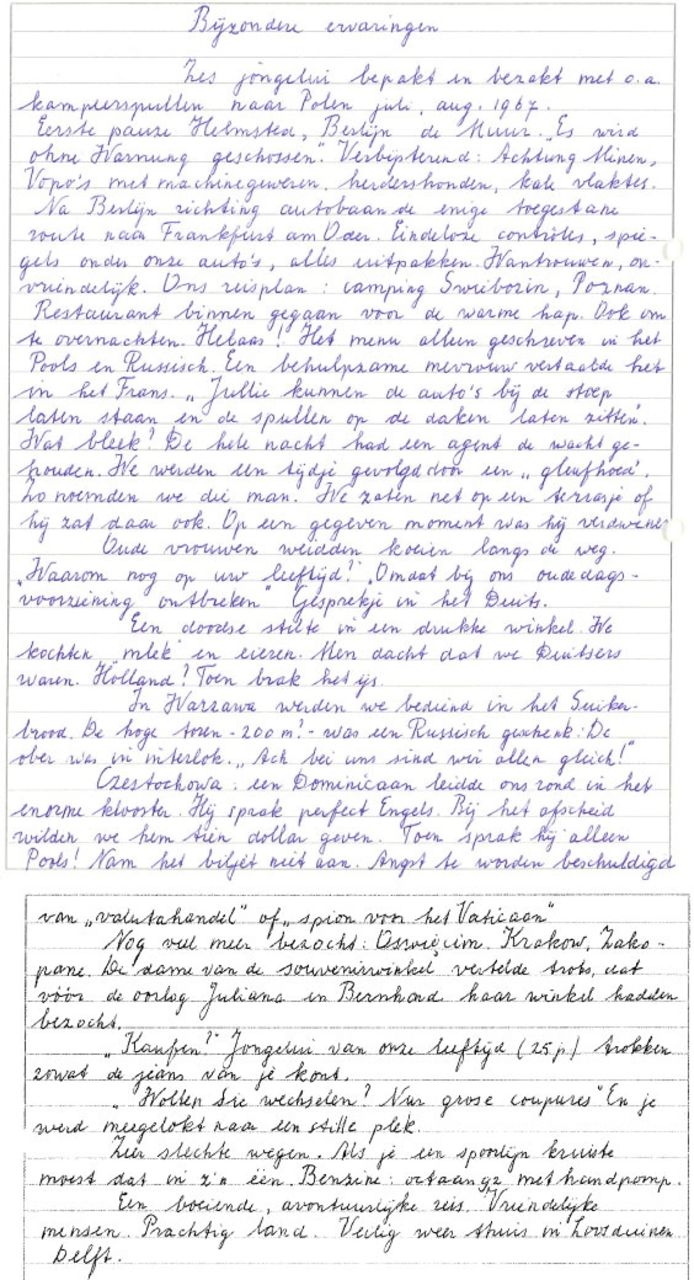 Bijzondere ervaringen
Zes jongelui bepakt en bezakt met o.a.
kampeerspullen naar Polen juli, aug. 1967.
Eerste pauze Helmsted, Berlijn de Muur. „Es wird
ohne Warnung geschossen". Verbijsterend: Achtung Minen,
Vopo's met machinegeweren, herdershonden, kale vlaktes.
Na Berlijn richting autobaan de enige toegestane
route naar Frankfurt am Oder. Eindeloze contrôles, spie-
gels onder onze auto's, alles uitpakken. Wantrouwen, on-
vriendelijk. Ons reisplan: camping Swiebozin, Poznan.
Restaurant binnen gegaan voor de warme hap. Ook om
te overnachten. Helaas! Het menu alleen geschreven in het
Pools en Russisch. Een behulpzame mevrouw vertaalde het
in het Frans. „Jullie kunnen de auto's bij de stoep
laten staan en de spullen op de daken laten zitten".
Wat bleek? De hele nacht had een agent de wacht ge-
houden. We werden een tijdje gevolgd door een „gleufhoed".
Zo noemden we die man. We zaten net op een terrasje of
hij zat daar ook. Op een gegeven moment was hij verdwenen
Oude vrouwen weidden koeien langs de weg.
„Waarom nog op uw leeftijd?" „Omdat bij ons oudedags-
voorziening ontbreken" Gesprekje in het Duits.
Een doodse stilte in een drukke winkel. We
kochten "mlek" en eieren. Men dacht dat we Duitsers
waren. Holland? Toen brak het ijs.
In Warzawa werden we bediend in het Suiker-
brood. De hoge toren - 200 m! - was een Russisch geschenk. De
ober was in interlok. „Ach bei uns sind wir allen gleich!"
Czestochowa: een Dominicaan leidde ons rond in het
enorme klooster. Hij sprak perfect Engels. Bij het afscheid
wilden we hem tien dollar geven. Toen sprak hij alleen
Pools! Nam het biljèt niet aan. Angst te worden beschuldigd
van „valutahandel" of „spion voor het Vaticaan"
Nog veel meer bezocht: Oswięcim. Krakow, Zako-
pane. De dame van de souvenirwinkel vertelde trots, dat
vóór de oorlog Juliana en Bernhard haar winkel hadden
bezocht.
„Kaufen?" Jongelui van onze leeftijd (25 j) trokken
zowat de jeans van je kont.
„Wollen Sie wechselen? Nur grose coupures" En je
werd meegelokt naar een stille plek.
Zeer slechte wegen. Als je een spoorlijn kruiste
moest dat in z'n één. Benzine: octaan 92 met handpomp.
Een boeiende, avontuurlijke reis. Vriendelijke
mensen. Prachtig land. Veilig weer thuis in Loosduinen
Delft.